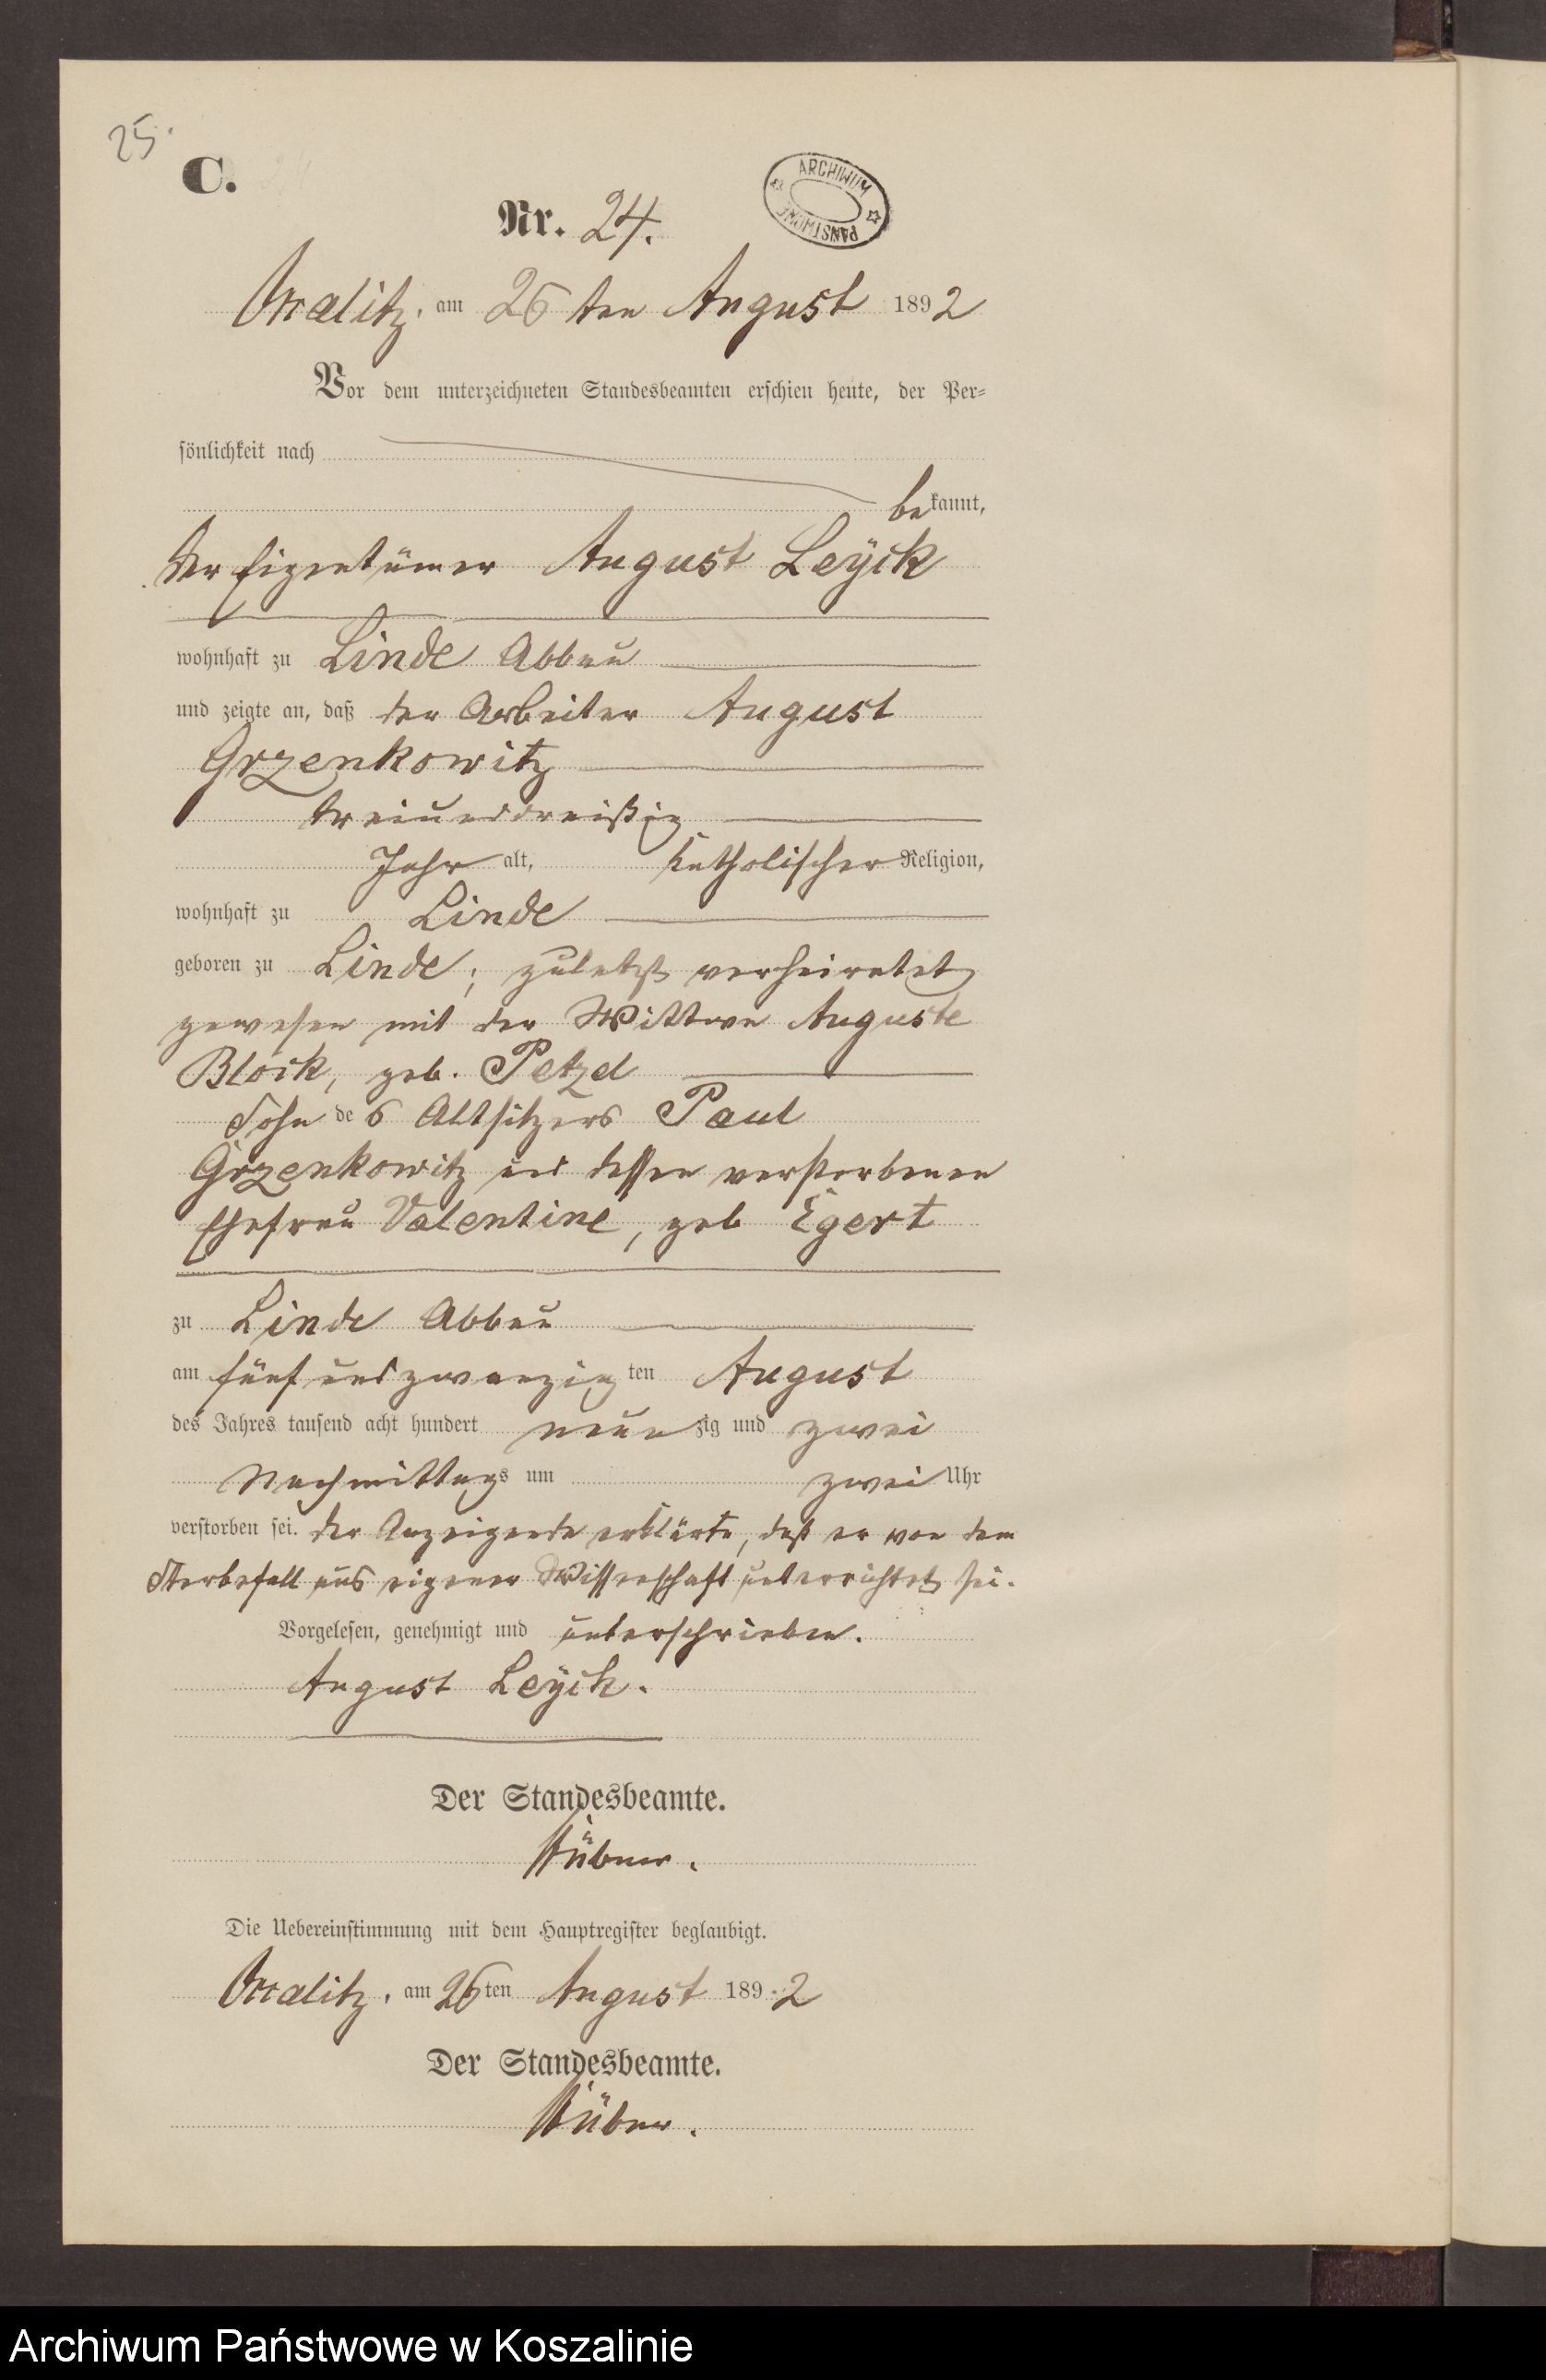 25.
C.
Nr. 24.
ARCHIWUM PAŃSTWOWE
am 26 ten August 1892
Vor dem unterzeichneten Standesbeamten erschien heute, der Per-
sönlichkeit nach
bekannt,
der Eigentümer August Leyck
wohnhaft zu Linde Abbau
und zeigte an, daß der Arbeiter August
Grzenkowitz
dreiunddreißig
Jahr alt, katholischer Religion,
wohnhaft zu Linde
geboren zu Linde, zuletzt verheiratet
gewesen mit der Wittwe Auguste
Block, geb. Petzel
Sohn des Altsitzers Paul
Grzenkowitz und dessen verstorbenen
Ehefrau Valentine, geb Egert
zu Linde Abbau
am fünf und zwanzigten August
des Jahres tausend acht hundert neunzig und zwei
Nachmittags um zwei Uhr
verstorben sei. Der Anzeigende erklärte, daß er von dem
Sterbefall aus eigener Wissenschaft unterrichtet sei.
Vorgelesen, genehmigt und unterschrieben.
August Leyck.
Der Standesbeamte.
Hübner.
Die Uebereinstimmung mit dem Hauptregister beglaubigt.
am 26ten August 1892
Der Standesbeamte.
Hübner.
Archiwum Państwowe w Koszalinie